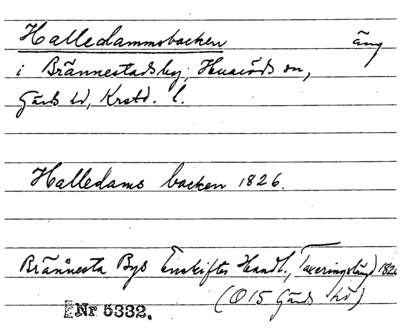 Halledammsbacken äng
i Brännestads by, Huaröds sn,
Gärds hd, Krstd. l.
Halledams backen 1826.
Brännesta Bys Enskiftes Handl., Taxeringslängd 1826
(O 15 Gärds hd)
Nr 5332.